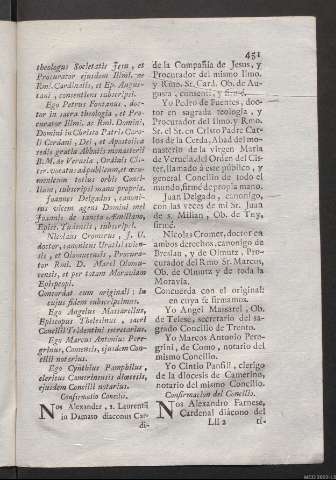 451
theologus Societatis Jesu, et
Procurator ejusdem Illmi. ac
Rmi. Cardinalis, et Ep. Augus-
tani, consentiens subscripsi.
Ego Petrus Fontanus, doc-
tor in sacra theologia, et Pro-
curator Illmi. ac Rmi. Domini,
Domini in Christo Patris Caro-
li Cerdani, Dei, et Apostolica
sedis gratia Abbatis monasterii
B. M. de Veruela, Ordinis Cis-
ter. vocatus ad publicum, et œcu-
menicum totius orbis Conci-
lium, subscripsi manu propria.
Joannes Delgados, canoni-
cus vicem agens Domini mei
Joannis de sancto Æmiliano,
Episc. Tudensis, subscripsi.
Nicolaus Cromerus, J. U.
doctor, canonicus Uratislavien-
sis, et Olomucensis, Procura-
tor Rmi. D. Marci Olomu-
censis, et per totam Moraviam
Episcopi.
Concordat cum originali: in
cujus fidem subscripsimus.
Ego Angelus Massarellus,
Episcopus Thelesinus, sacri
Concilii Tridentini secretarius.
Ego Marcus Antonius Pere-
grinus, Comensis, ejusdem Con-
cilii notarius.
Ego Cynthius Pamphilus,
clericus Camerinensis diœcesis,
ejusdem Concilii notarius.
Confirmatio Concilii.
Nos Alexander, s. Laurentii
in Damaso diaconus Car-
di-
de la Compañía de Jesus, y
Procurador del mismo Ilmo.
y Rmo. Sr. Card. Ob. de Au-
gusta, consentí, y firmé.
Yo Pedro de Fuentes, doc-
tor en sagrada teología, y
Procurador del Ilmo. y Rmo.
Sr. el Sr. en Cristo Padre Car-
los de la Cerda, Abad del mo-
nasterio de la vírgen María
de Veruela, del Orden del Cis-
ter, llamado á ese público, y
general Concilio de todo el
mundo, firmé de propia mano.
Juan Delgado, canonigo,
con las veces de mi Sr. Juan
de s. Millan, Ob. de Tuy,
firmé.
Nicolas Cromer, doctor en
ambos derechos, canonigo de
Breslau, y de Olmutz, Pro-
curador del Rmo Sr. Marcus,
Ob. de Olmutz y de toda la
Moravia.
Concuerda con el original:
en cuya fe firmamos.
Yo Angel Massarel, Ob.
de Telese, secretario del sa-
grado Concilio de Trento.
Yo Marcos Antonio Pero-
grini, de Como, notario del
mismo Concilio.
Yo Cintio Panfili, clerigo
de la diócesis de Camerino,
notario del mismo Concilio.
Confirmacion del Concilio.
Nos Alexandro Farnese,
Cardenal diácono del
Lll 2 tí-